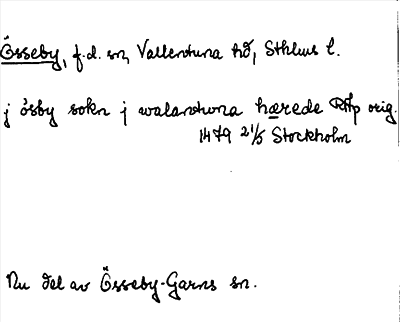 Össeby, f.d. sn, Vallentuna hd, Sthlms l.
j ösby sokn j walandwna hærede RAp orig.
1479 21/5 Stockholm
Nu del av Össeby-Garns sn.